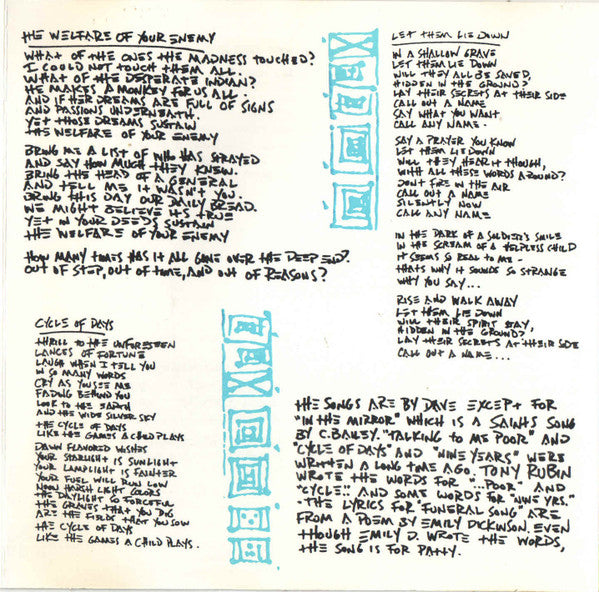 THE WELFARE OF YOUR ENEMY
WHAT OF THE ONES THE MADNESS TOUCHED?
I COULD NOT TOUCH THEM ALL.
WHAT OF THE DESPERATE INDIAN?
HE MAKES A MONKEY FOR US ALL.
AND IF HER DREAMS ARE FULL OF SIGNS
AND PASSIONS UNDERNEATH.
YET THOSE DREAMS SUSTAIN
THE WELFARE OF YOUR ENEMY
BRING ME A LIST OF WHO HAS STRAYED
AND SAY HOW MUCH THEY KNEW.
BRING THE HEAD OF A GENERAL
AND TELL ME IT WASN'T YOU.
BRING THIS DAY OUR DAILY BREAD.
WE MIGHT BELIEVE ITS TRUE
YET IN YOUR DEEDS SUSTAIN
THE WELFARE OF YOUR ENEMY
HOW MANY TIMES HAS IT ALL GONE OVER THE DEEP END?
OUT OF STEP, OUT OF TIME, AND OUT OF REASONS?
CYCLE OF DAYS
THRILL TO THE UNFORESEEN
LANCES OF FORTUNE
LAUGH WHEN I TELL YOU
IN SO MANY WORDS
CRY AS YOU SEE ME
FADING BEHIND YOU
LOOK TO THE EARTH
AND THE WIDE SILVER SKY
THE CYCLE OF DAYS
LIKE THE GAMES A CHILD PLAYS
DAWN FLAVORED WISHES
YOUR STARLIGHT IS SUNLIGHT
YOUR LAMPLIGHT IS FAINTER
YOUR FUEL WILL RUN LOW
NOON HARSH LIGHT COLORS
THE DAYLIGHT SO FORCEFUL
THE GRAVES THAT YOU DIG
ARE THE FIELDS THAT YOU SOW
THE CYCLE OF DAYS
LIKE THE GAMES A CHILD PLAYS.
LET THEM LIE DOWN
IN A SHALLOW GRAVE
LET THEM LIE DOWN
WILL THEY ALL BE SAVED,
HIDDEN IN THE GROUND?
LAY THEIR SECRETS AT THEIR SIDE
CALL OUT A NAME
SAY WHAT YOU WANT
CALL ANY NAME.
SAY A PRAYER YOU KNOW
LET THEM LIE DOWN
WILL THEY HEAR IT THOUGH,
WITH ALL THESE WORDS AROUND?
DON'T FIRE IN THE AIR
CALL OUT A NAME
SILENTLY NOW
CALL ANY NAME
IN THE DARK OF A SOLDIER'S SMILE
IN THE SCREAM OF A HELPLESS CHILD
IT SEEMS SO REAL TO ME -
THATS WHY IT SOUNDS SO STRANGE
WHY YOU SAY...
RISE AND WALK AWAY
LET THEM LIE DOWN
WILL THEIR SPIRIT STAY,
HIDDEN IN THE GROUND?
LAY THEIR SECRETS AT THEIR SIDE
CALL OUT A NAME...
THE SONGS ARE BY DAVE EXCEPT FOR
"IN THE MIRROR" WHICH IS A SAINTS SONG
BY C.BAILEY. "TALKING TO ME POOR" AND
"CYCLE OF DAYS" AND "NINE YEARS" WERE
WRITTEN A LONG TIME AGO. TONY RUBIN
WROTE THE WORDS FOR "...POOR" AND
"CYCLE.." AND SOME WORDS FOR "NINE YRS."
"THE LYRICS FOR "FUNERAL SONG" ARE
FROM A POEM BY EMILY DICKINSON. EVEN
THOUGH EMILY D. WROTE THE WORDS,
THE SONG IS FOR PATTY.